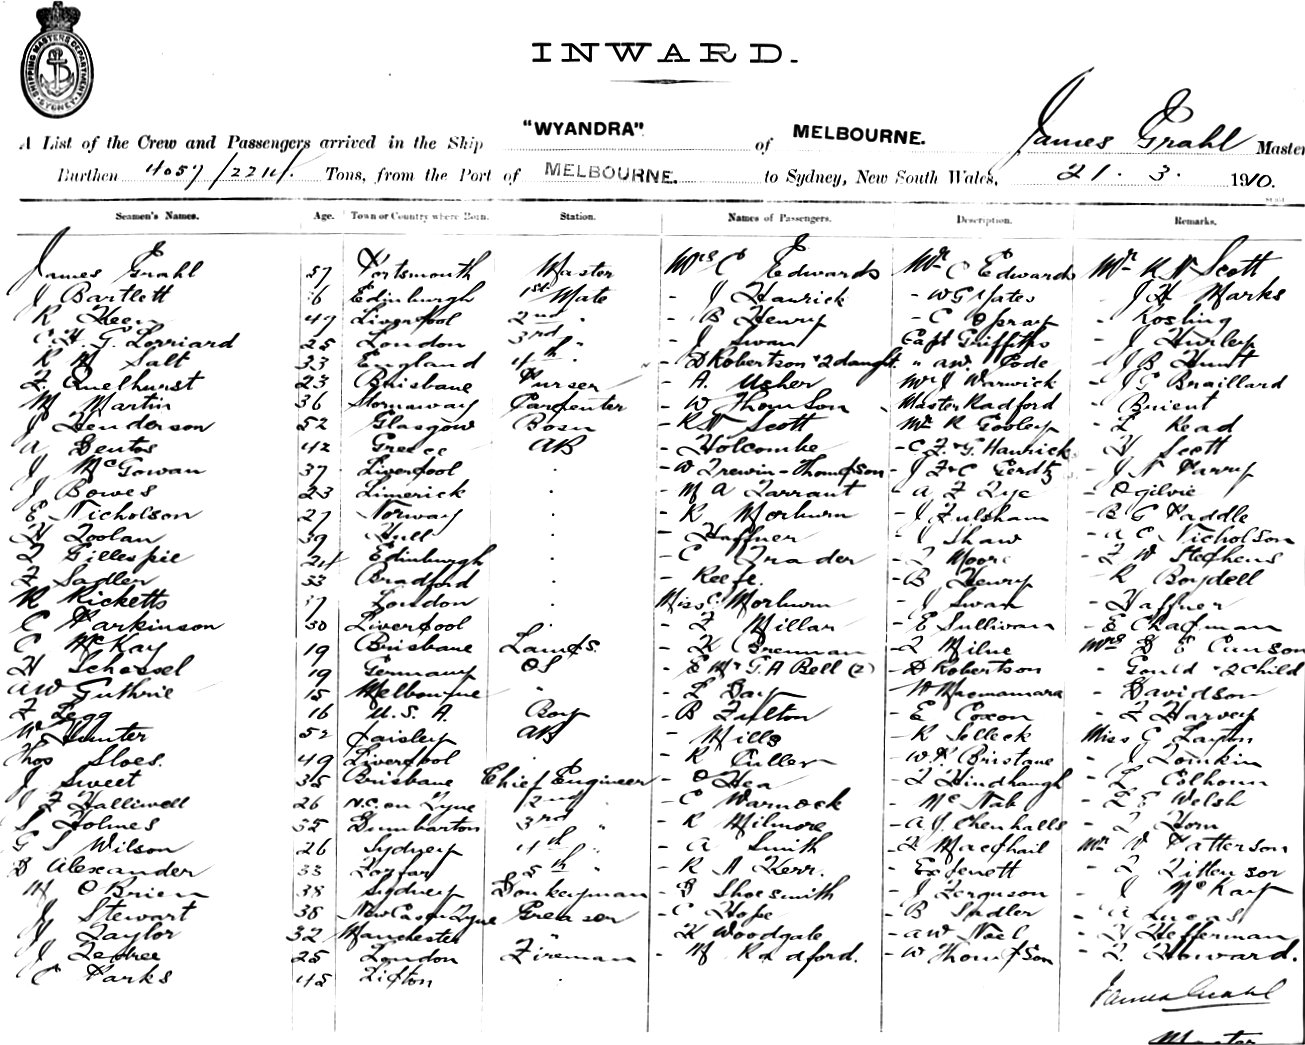 SHIPPING MASTERS DEPARTMENT SYDNEY
INWARD.
A List of the Crew and Passengers arrived in the Ship "WYANDRA" of MELBOURNE. James Grahl Master
Burthen 4057/2211. Tons, from the Port of MELBOURNE. to Sydney, New South Wales, 21. 3. 1910.
Seamen's Names. Age. Town or Country where Born. Station. Names of Passengers. Description. Remarks.
James Grahl 57 Portsmouth Master Mrs C Edwards Mr C Edwards Mr R N Scott
J Bartlett Edinburgh 1st Mate - J Hanrick - W G Yates - J H Marks
R Keen 47 Liverpool 2nd " - B Henry - C Spray - Rosling
G Lorriard 25 London 3rd " - J Swan Capt Griffiths - J Hurley
R H Salt 33 England 4th " - D Robertson & 2 daught. " AW. Pode - J B Hunt
Amelhurst 23 Brisbane Purser - A. Usher Mr J Warwick - J G Braillard
M Martin 36 Stornoway Carpenter - W Thomson - Master Radford - Brient
J Henderson 52 Glasgow Bosn - R N Scott Mr R Gooley - L Read
A Dentos 42 Greece AB - Holcombe - C F. G. Hanrick - H Scott
J McGowan 37 Liverpool " - W Trewin-Thompson - J F C Gerdtz - J N Parry
J Bowes 23 Limerick " - M A Tarrant - A F Tye - Ogilvie
E Nicholson 27 Norway " - R Morburn - J Fulsham - B G Paddle
H Toolan 39 Hull " - Haffner - J Shaw - A C Nicholson
T Gillespie 24 Edinburgh " - C Trader - T Moore - F W Stephens
F Sadler 33 Bradford " - Keefe. - B Henry - R Boydell
R Ricketts 37 London " Miss C. Morburn - J Swan - Haffner
C Parkinson 50 Liverpool " - F Millar - E Sullivan - E Chapman
C McKay 19 Brisbane Lamps. - K Brennan - T Milne Mrs D E Cawson
H Schessel 19 Germany OS - E Mr G. A Bell (2) - D Robertson - Gould & 2 child
AW Guthrie 15 Melbourne " - L Day - W Macnamara - Davidson
F Legg 16 U.S.A. Boy - B Fulton - E Coxon - F Harvey
W Hunter 52 Paisley AB - Mills - R Selleck Miss C Layton
Thos Sloes. 49 Liverpool " - R Puller - W P. Bristane - J Tomkin
J Sweet 35 Brisbane Chief Engineer - O Hea - T Hindhaugh - L Colhoun
J F Halliwell 26 N.C. on Tyne 2nd " - C Warnock - McNab - L E Welsh
S Holmes 35 Dumbarton 3rd " - R Milmore - A J. Chenhalls - F Horn
G S Wilson 26 Sydney 4th " - A Smith - F Macphail Mr V Patterson
D Alexander 33 Forfar 5th " - R A Kerr. - Expenett - T Tillenson
M O'Brien 38 Sydney Donkeyman - G Shoesmith - J Ferguson - J McKay
J Stewart 38 New Cas on Tyne Greaser - C Hope - B Sadler - A Lucas
J Taylor 32 Manchester " - K Woodgate - AW Noel - H Hefferman
J Tedree 25 London Fireman - M Radford. - W Thompson - T. Howard.
C Parks 45 Lifton "
James Grahl
Master